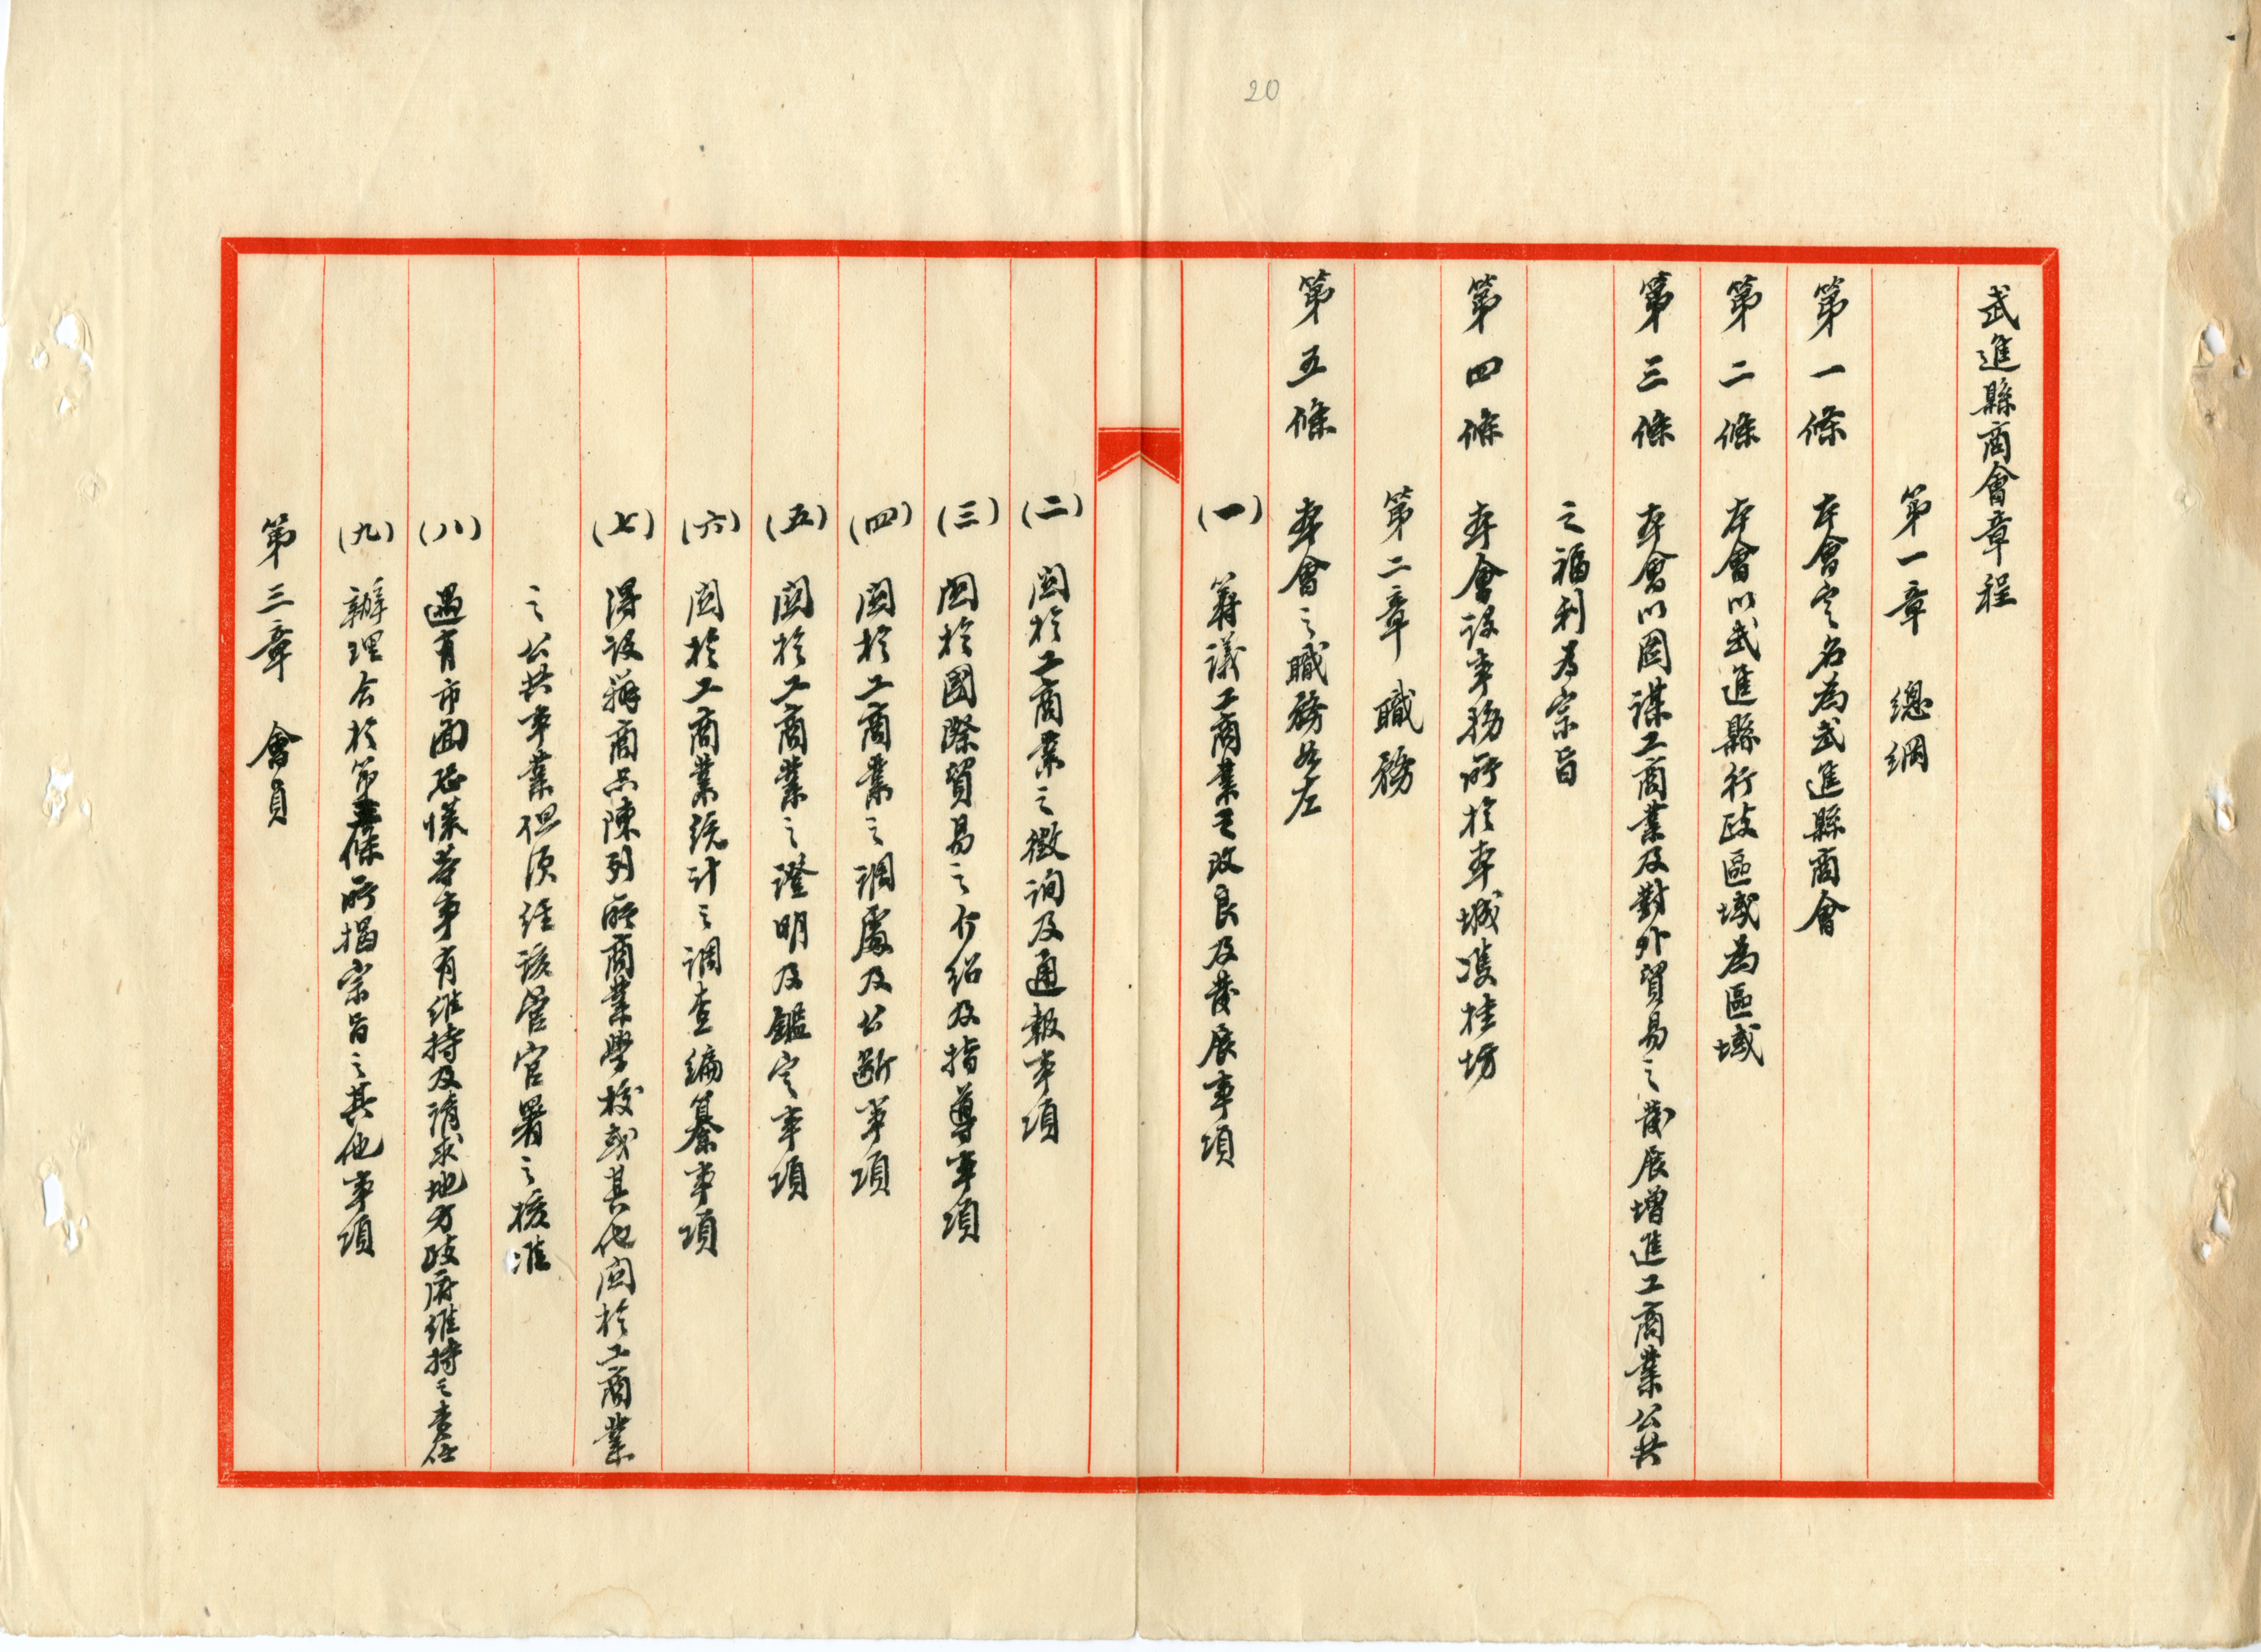 20
武進縣商會章程
第一章 總綱
第一條 本會定名為武進縣商會
第二條 本會以武進縣行政區域為區域
第三條 本會以圖謀工商業及對外貿易之發展增進工商業公共
之福利為宗旨
第四條 本會設事務所於本城雙桂坊
第二章 職務
第五條 本會之職務如左
(一) 籌議工商業之改良及發展事項
(二) 關於工商業之徵詢及通報事項
(三) 關於國際貿易之介紹及指導事項
(四) 關於工商業之調處及公斷事項
(五) 關於工商業之證明及鑑定事項
(六) 關於工商業統計之調查編纂事項
(七) 得設辦商品陳列所商業學校或其他關於工商業
之公共事業但須經該管官署之核准
(八) 遇有市面恐慌等事有維持及請求地方政府維持之責任
(九) 辦理合於第三條所揭宗旨之其他事項
第三章 會員